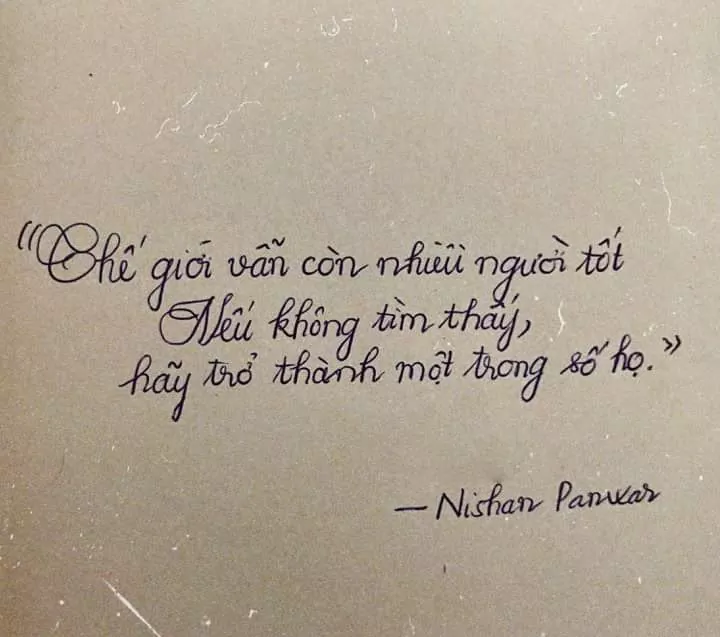 “Thế giới vẫn còn nhiều người tốt
Nếu không tìm thấy,
hãy trở thành một trong số họ.”
— Nishan Panwar